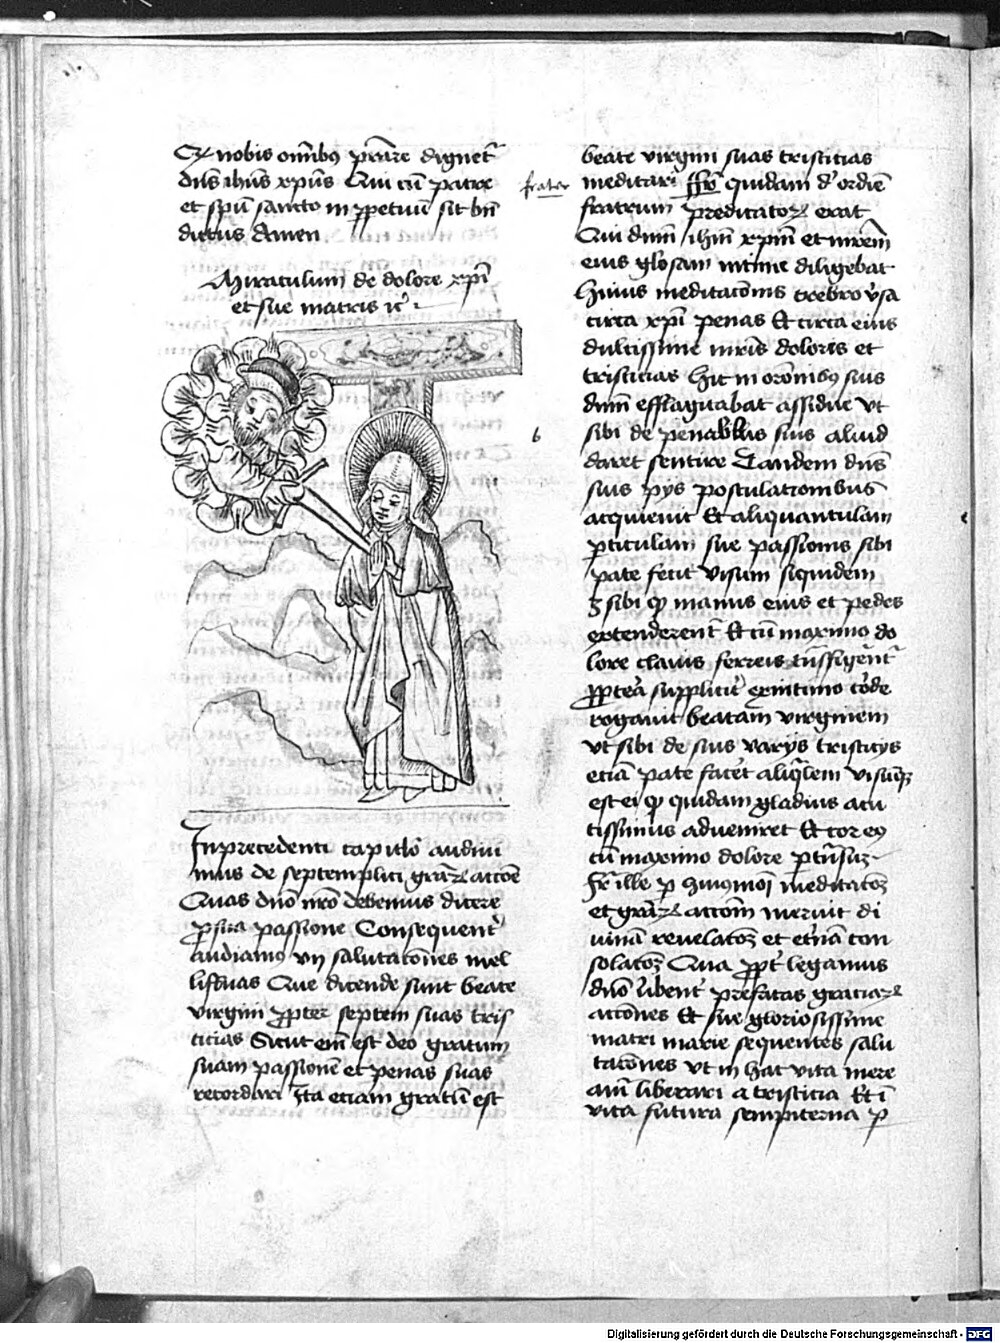 Et nobis om̄ibꝯ p̄stare dignet᷑
dn̄s ihūs xp̄us Qui cū patre
et spū sancto in ꝑpetuū sit bn̄
dictus Amen
Miraculum de dolore xp̄i
et sue matris
In precedenti capitl̓o audiui
mus de septemplici gr̄aꝝ acc̄oe
Quas dn̄o nr̄o debemus dicere
ꝓ sua passione Consequent᷑
audiamꝯ vij salutac̄oes mel
lifluas Que dicende sunt beate
virgini ꝓpter septem suas tris
ticias Sicut em̄ est deo gratum
suam passionē et penas suas
recordari Ita etiam gratū est
beate virgini suas tristicias
frater
meditari ffr̄ quidam d' ordīe
fratrum predicatoꝝ erat
Qui dnm̄ ihm̄ xp̄m et mr̄em
eius gl̓osam intime diligebat
Huius meditac̄ois crebro v̓sa
circa xp̄i penas Et circa eius
dulcissime mr̄is doloris et
tristicias Hic in or̄onibꝯ suis
dnm̄ efflagitabat assidue vt
b
sibi de penabilis suis aliud
daret sentire Tandem dn̄s
suis pijs postulationibus
acquieuit Et aliquantulam
ꝑticulam sue passionis sibi
pate fecit Visum siquidem
sibi ꝙ manus eius et pedes
extenderent᷑ Et cū maximo do
lore clauis ferreis tn̄sfigent᷑
ꝓpt̓ea supplicit̓ ex intimo corde
rogauit beatam virginem
vt sibi de suis varijs tristicijs
etiā pate facet̓ aliq̄lem visūqꝫ
est ei ꝙ quidam gladius acu
tissimus adueniret Et cor eꝯ
cū maximo dolore ꝑtn̄siꝫ
Fr̄ ille ꝑ meditac̄oꝫ
et gr̄aꝝ acc̄om meruit di
uinā reuelac̄oꝫ et et̓nā con
solac̄oꝫ Qua ꝓpt̓ legamus
dn̄o libent̓ prefatas graciaꝝ
acc̄ones Et sue gloriosissime
matri marie sequentes salu
tac̄ones vt in hac vita mere
am̄ liberari a tristicia Et ī
vita futura sempiterna ꝑ
Digitalisierung gefördert durch die Deutsche Forschungsgemeinschaft - DFG